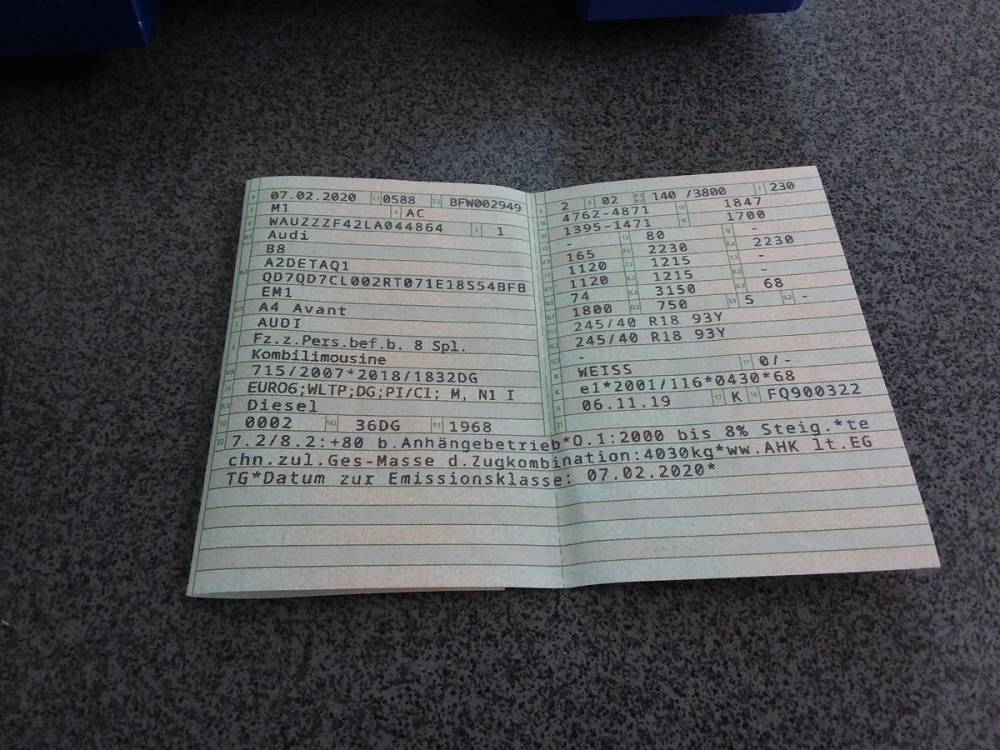 07.02.2020 0588 BFW002949
M1 AC
WAUZZZF42LA044864 1
Audi
B8
A2DETAQ1
QD7QD7CL002RT071E18S54BFB
EM1
A4 Avant
AUDI
Fz.z.Pers.bef.b. 8 Spl.
Kombilimousine
715/2007*2018/1832DG
EURO6;WLTP;DG;PI/CI; M, N1 I
Diesel
0002 36DG 1968
2 02 140 /3800 230
4762-4871 1847
1395-1471 1700
- 80 -
165 2230 2230
1120 1215 -
1120 1215 -
74 3150 68
1800 750 5 -
245/40 R18 93Y
245/40 R18 93Y
-
WEISS 0/-
e1*2001/116*0430*68
06.11.19 K FQ900322
7.2/8.2:+80 b.Anhängebetrieb*O.1:2000 bis 8% Steig.*te
chn.zul.Ges-Masse d.Zugkombination:4030kg*ww.AHK lt.EG
TG*Datum zur Emissionsklasse: 07.02.2020*